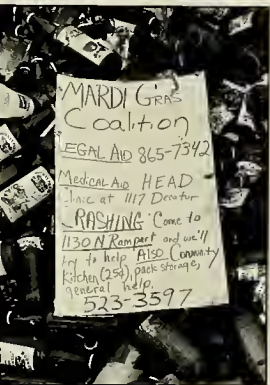 MARDI GRAS
Coalition
LEGAL AID 865-7342
Medical Aid HEAD
Clinic at 1117 Decatur
CRASHING Come to
1130 N Rampart and we'll
try to help ALSO Community
Kitchen (25¢), pack storage,
general help.
523-3597